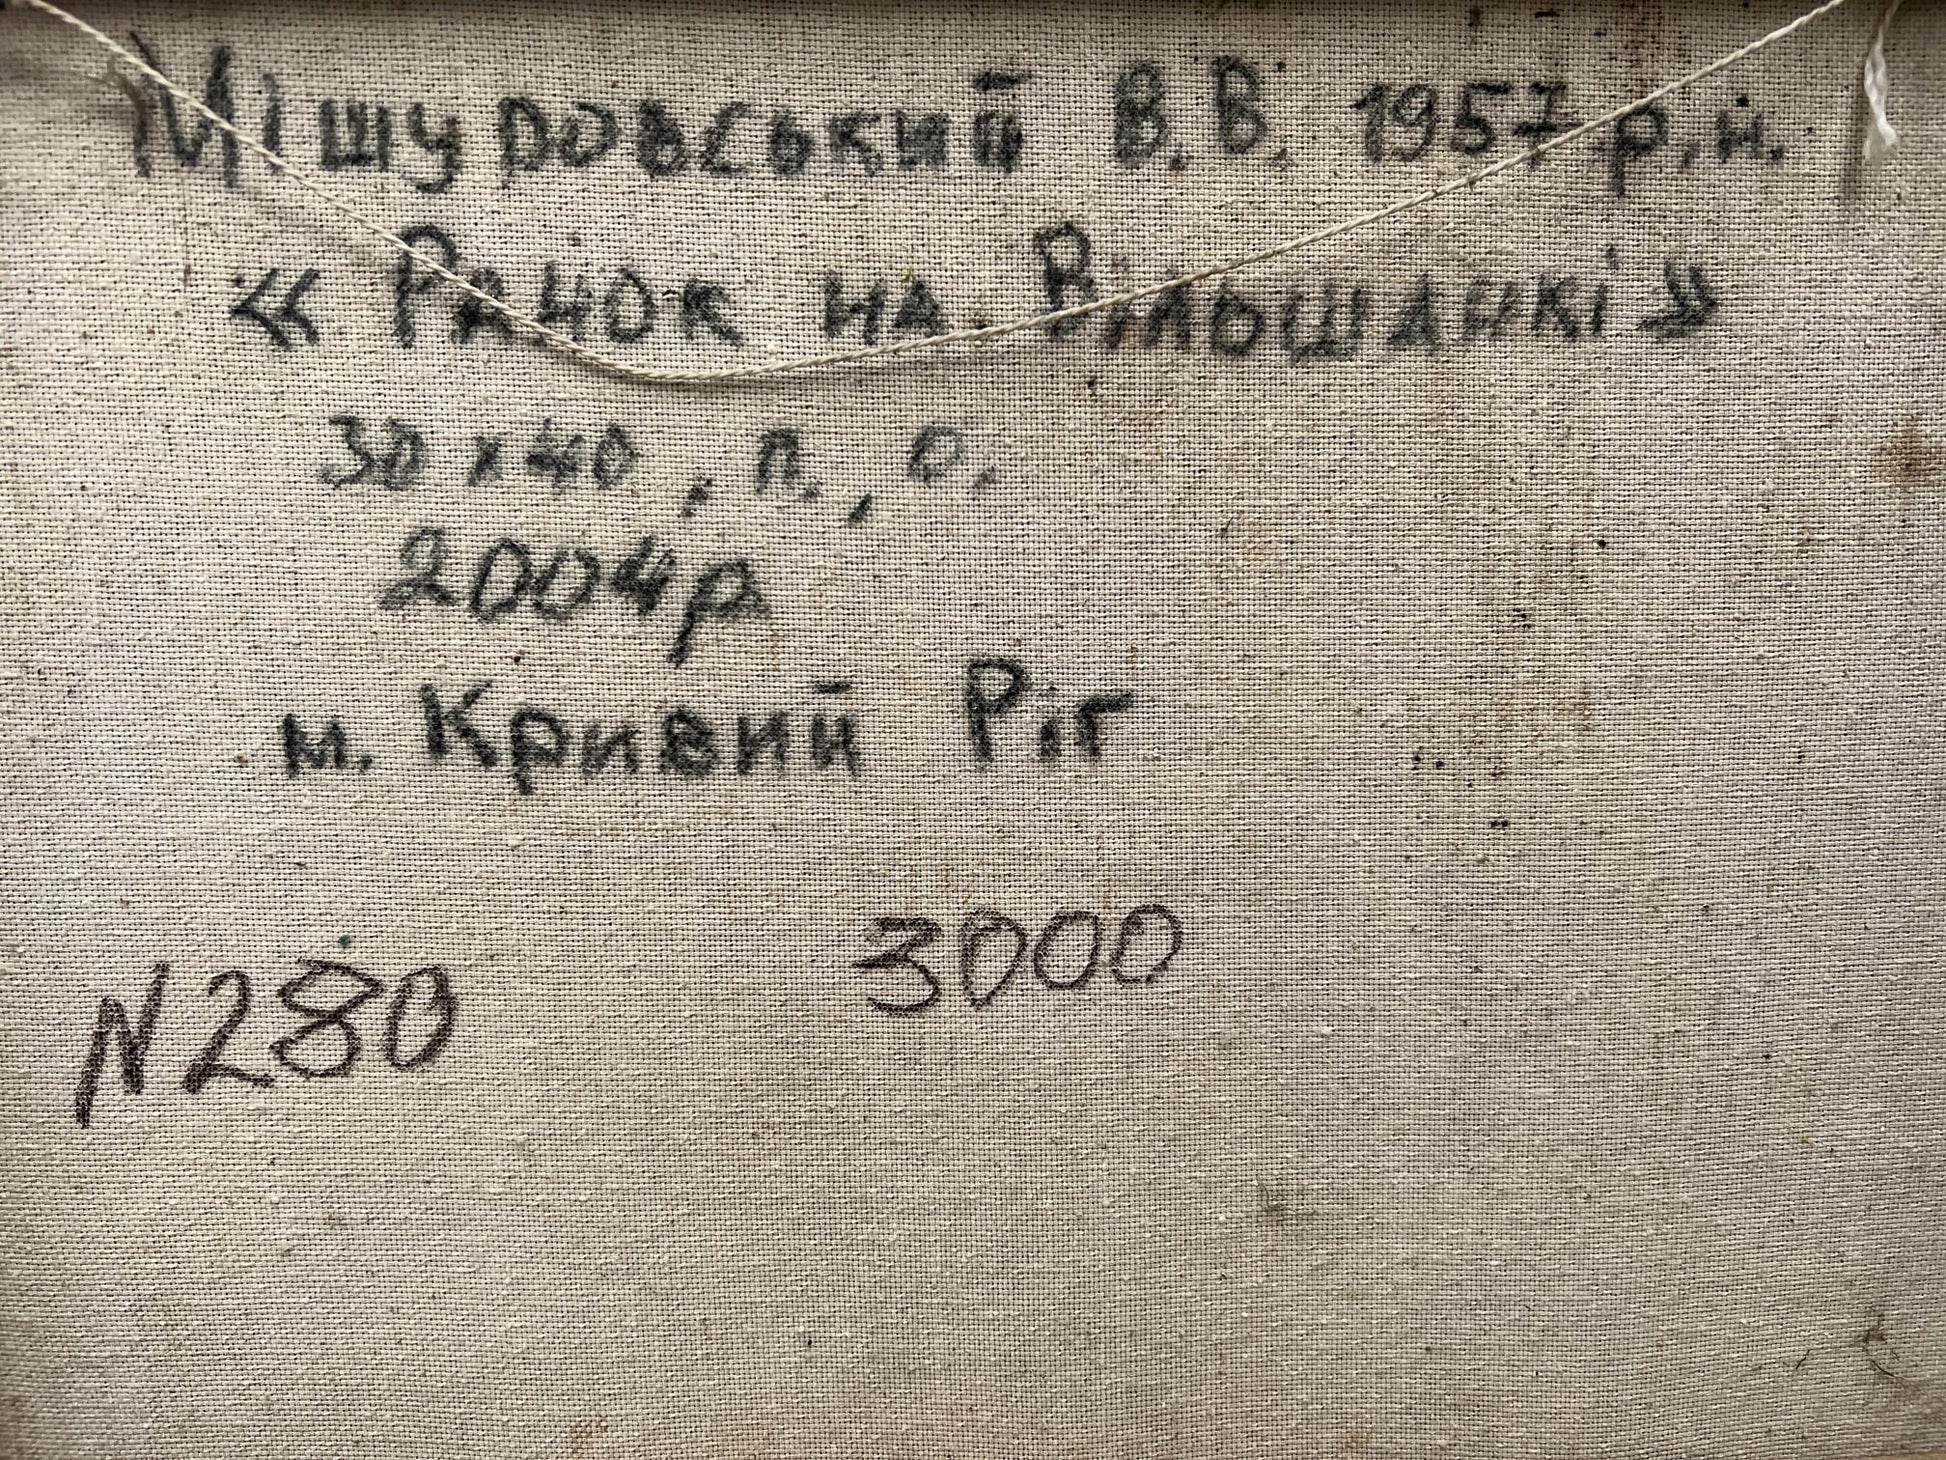 Мішуровський В.В. 1957 р.н.
« Ранок на Вілошанкі »
30 х 40 , п. , о.
2004р
м. Кривий Ріг
3000
N280